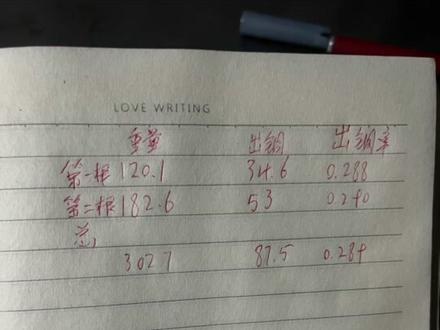 LOVE WRITING
重量 出铜 出铜率
第一根 120.1 34.6 0.288
第二根 182.6 53 0.290
总
302.7 87.5 0.289